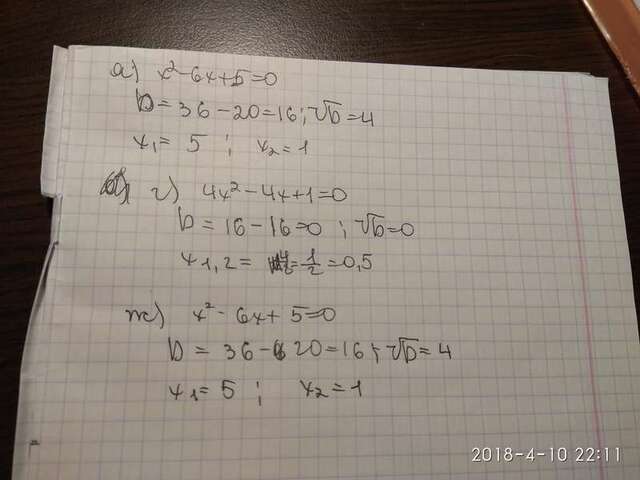 а) x²-6x+5=0
D=36-20=16; √D=4
x₁=5; x₂=1
г) 4x²-4x+1=0
D=16-16=0; √D=0
x₁,₂= =1/2=0,5
ж) x²-6x+5=0
D=36-20=16; √D=4
x₁=5; x₂=1
2018-4-10 22:11